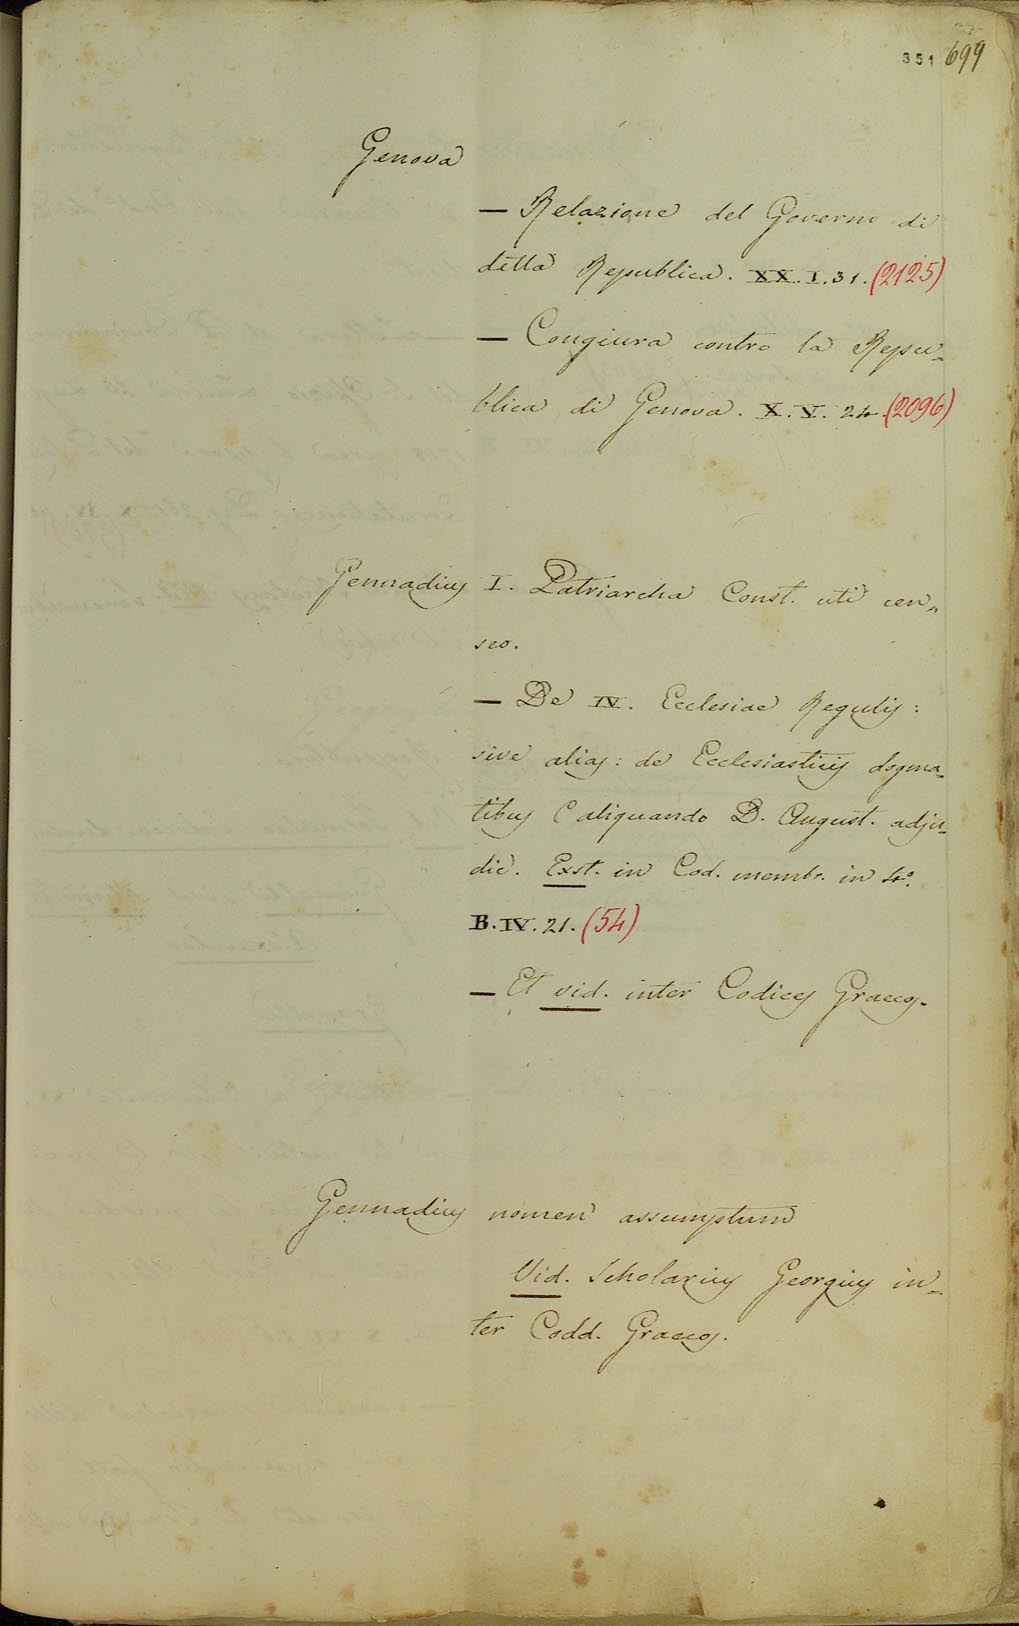 351 699
Genova
— Relazione del Governo di
detta Republica. XX. I. 31. (2125)
— Congiura contro la Repu-
blica di Genova. X. V. 24. (2096)
Gennadius I. Patriarcha Const. uti cen-
seo.
— De IV. Ecclesiae Regulis:
sive alias: de Ecclesiasticis dogma-
tibus C aliquando D. August. adju-
dic. Exst. in Cod. membr. in 4º.
B. IV. 21. (54)
— Et vid. inter Codices Graecos.
Gennadius nomen assumptum
Vid. Scholarius Georgius in-
ter Codd. Graecos.